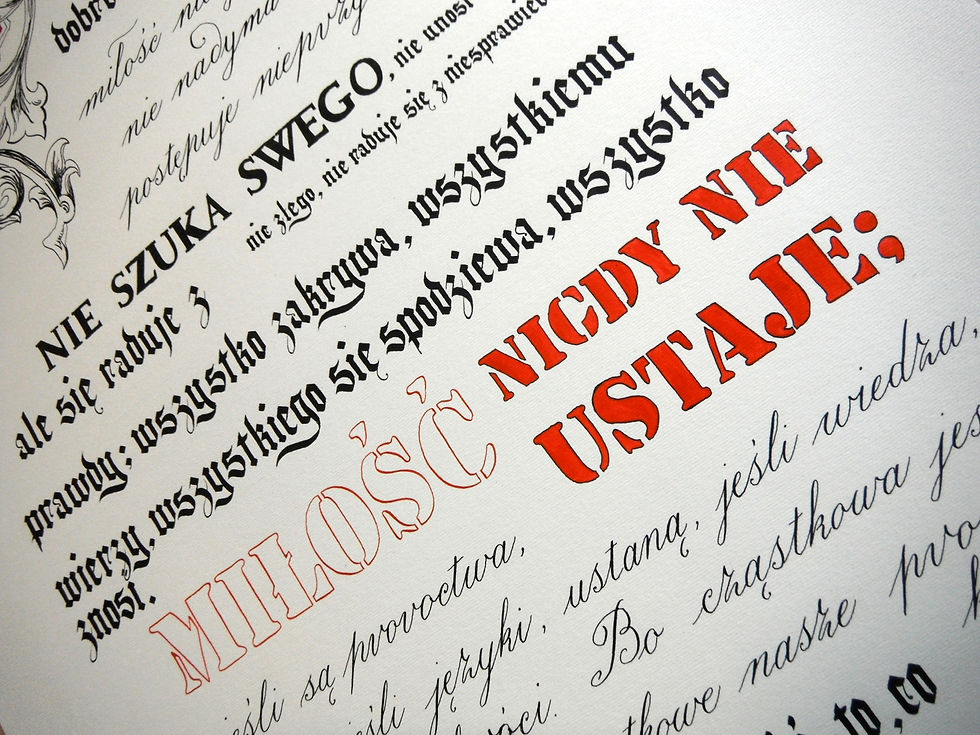 miłość
nie nadyma
postępuje
NIE SZUKA SWEGO, nie unosi
nie złego, nie raduje się z
ale się raduje z
prawdy; wszystko zakrywa, wszystkiemu
wierzy, wszystkiego się spodziewa, wszystko
znosi.
MIŁOŚĆ NIGDY NIE
USTAJE;
eśli są proroctwa,
eśli języki, ustaną, jeśli wiedza,
Bo cząstkowa jes
tkowe nasze pro
to, co